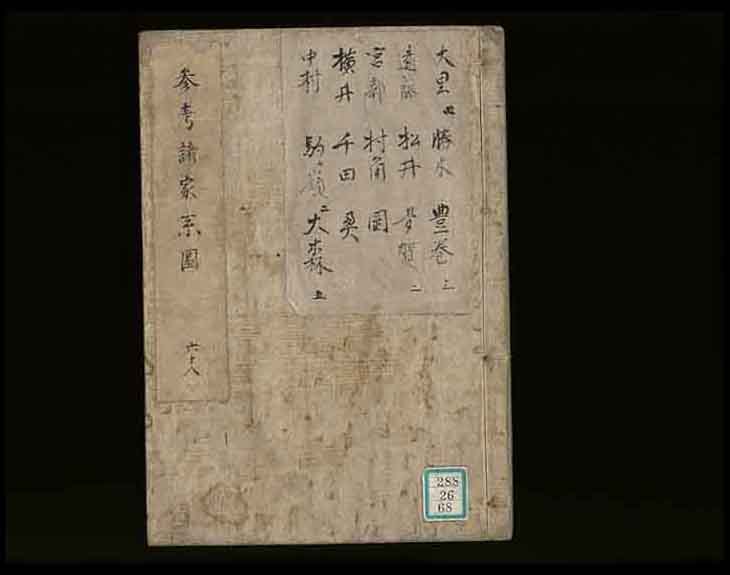 大里 四 勝木 豊巻 三
遠藤 松井 芳賀 二
宮 村角
横井 千田 奥
中村 駒ヶ嶺 二 大森 五
参考諸家系圖 六十八
288
26
68